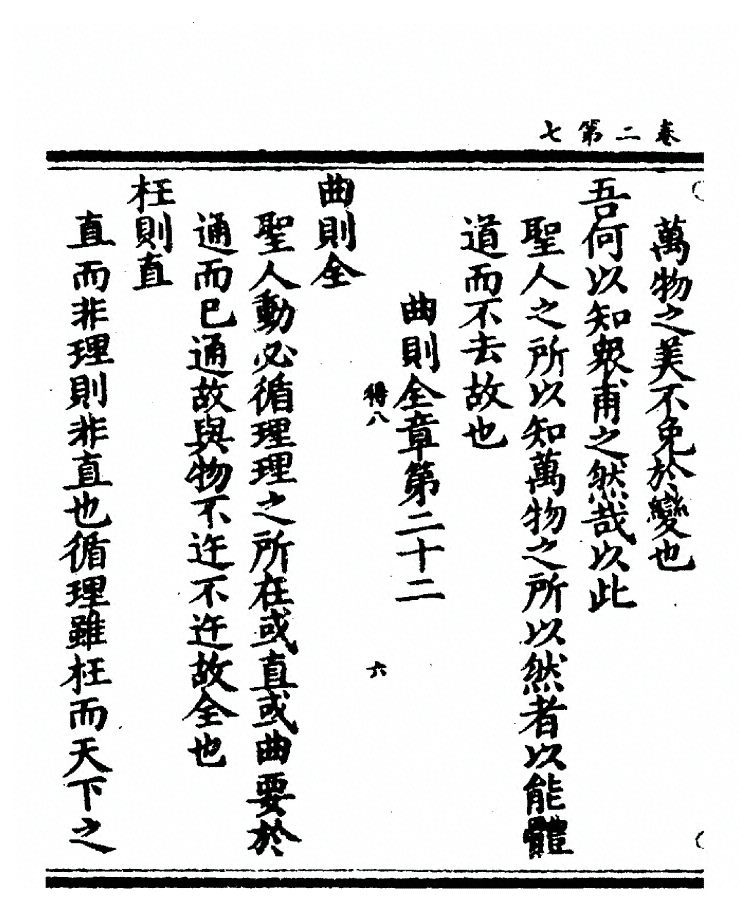 卷二第七
萬物之美不免於變也
吾何以知衆甫之然哉以此
聖人之所以知萬物之所以然者以能體
道而不去故也
曲則全章第二十二
得八
六
曲則全
聖人動必循理理之所在或直或曲要於
通而已通故與物不迕不迕故全也
枉則直
直而非理則非直也循理雖枉而天下之